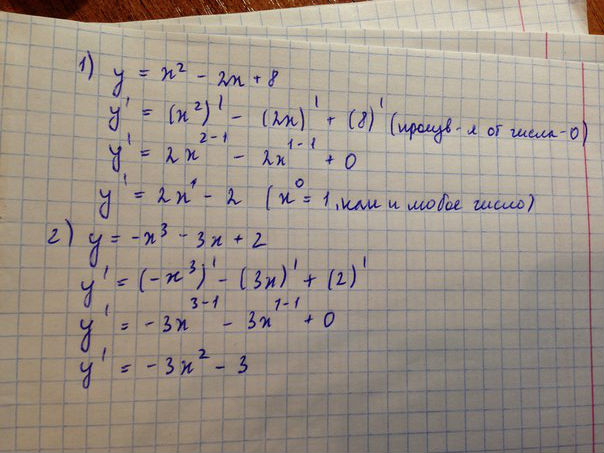 1) y = x² - 2x + 8
y' = (x²)' - (2x)' + (8)' (произв-я от числа - 0)
y' = 2x²⁻¹ - 2x¹⁻¹ + 0
y' = 2x¹ - 2 (x⁰ = 1, как и любое число)
2) y = -x³ - 3x + 2
y' = (-x³)' - (3x)' + (2)'
y' = -3x³⁻¹ - 3x¹⁻¹ + 0
y' = -3x² - 3